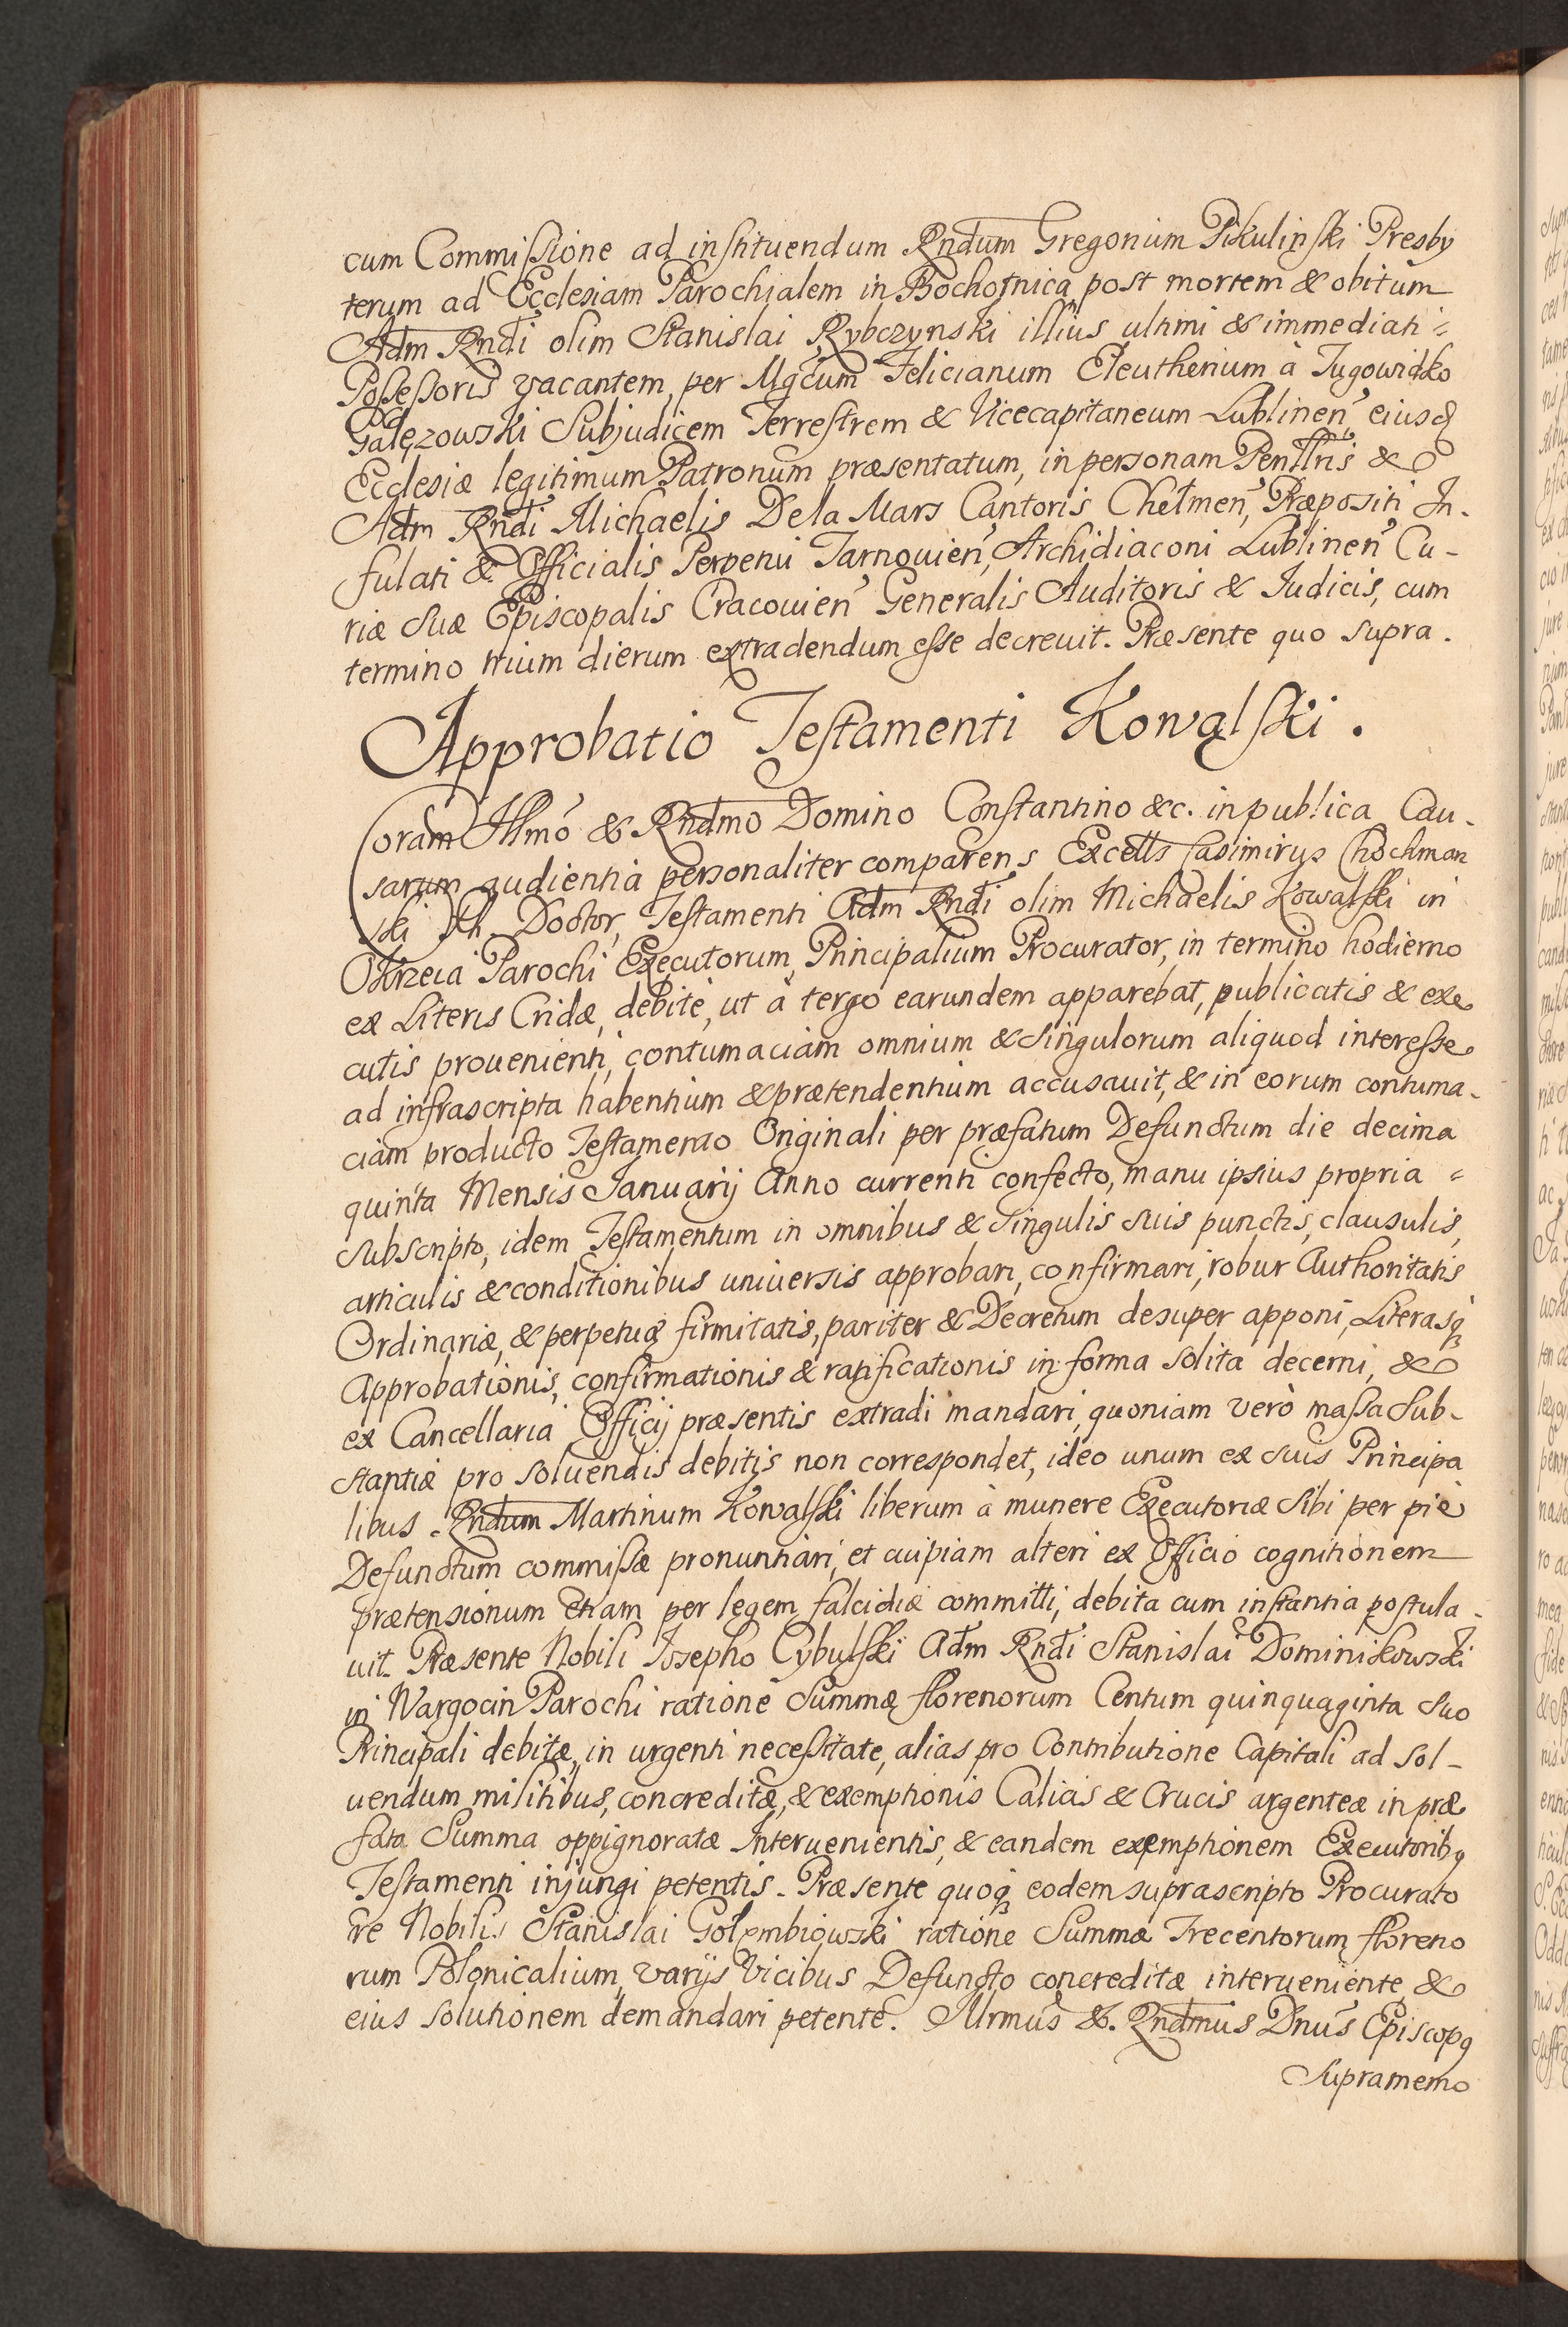 cum Commissione ad instituendum Rndum Gregorium Pikulinski Presby
terum ad Ecclesiam Parochialem in Bochotnica post mortem & obitum
Adm Rndi olim Stanislai Rybczynski illius ultimi & immediati
Possessoris vacantem, per Mgcum Felicianum Eleutherium à
Gałęzowski Subjudicem Terrestrem & Vicecapitaneum Lublinen, eiusq
Ecclesiæ legitimum Patronum præsentatum, in personam &
Adm Rndi Michaelis Dela Mars Cantoris Chełmen, Præpositi In-
fulati & Officialis Perpetui Tarnouien, Archidiaconi Lublinen Cu-
riæ Suæ Episcopalis Cracouien Generalis Auditoris & Iudicis, cum
termino trium dierum extradendum esse decreuit. Præsente quo supra.
Approbatio Testamenti Kowalski.
Coram Illmo & Rndmo Domino Constantino &c. in publica Cau-
sarum audientia personaliter comparens Excells Casimirus Chochman
ski Ph. Doctor, Testamenti Adm Rndi olim Michaelis Kowalski in
Parochi Executorum, Principalium Procurator, in termino hodierno
ex Literis Cridæ, debitè, ut à tergo earundem apparebat, publicatis & exe
cutis prouenienti, contumaciam omnium & singulorum aliquod interesse
ad infrascripta habentium & prætendentium accusauit, & in eorum contuma-
ciam producto Testamento Originali per præfatum Defunctum die decima
quinta Mensis Januarij Anno currenti confecto, manu ipsius propria
subscripto, idem Testamentum in omnibus & singulis suis punctis, clausulis,
articulis & conditionibus uniuersis approbari, confirmari, robur Authoritatis
Ordinariæ, & perpetuæ firmitatis, pariter & Decretum desuper apponi, Literasq
Approbationis, confirmationis & ratificationis in forma solita decerni, &
ex Cancellaria Officij præsentis extradi mandari, quoniam verò massa Sub-
stantiæ pro soluendis debitis non correspondet, ideo unum ex suis Principa
libus Rndum Martinum Kowalski liberum à munere Executoriæ sibi per piè
Defunctum commissæ pronuntiari, et cuipiam alteri ex Officio cognitionem
prætensionum etiam per legem falcidiæ committi, debita cum instantia postula-
uit. Præsente Nobili Josepho Cybulski Adm Rndi Stanislai Dominikowski
in Wargocin Parochi ratione Summæ florenorum Centum quinquaginta suo
Principali debitæ, in urgenti necessitate, alias pro Contributione Capitali ad sol-
uendum militibus, concreditæ, & exemptionis Calicis & Crucis argenteæ in præ
fata Summa oppignoratæ Interuenientis, & eandem exemptionem Executorib9
Testamenti injungi petentis. Præsente quoq eodem suprascripto Procurato
re Nobilis Stanislai Golembiowski ratione Summæ Trecentorum floreno
rum Polonicalium, varijs Vicibus Defuncto concreditæ interueniente, &
eius solutionem demandari petente. Illrmus &. Rndmus Dnus Episcop9
Supramemo